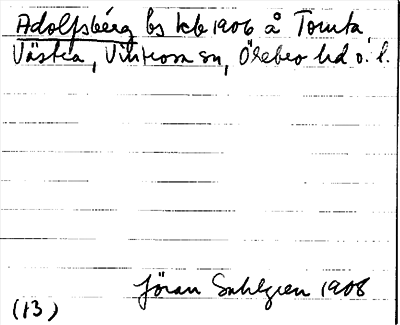 Adolfsbérg bs kb 1906 å Tomta,
Västra, Vintrosa sn, Örebro hd o. l.
Jöran Sahlgren 1908
(13)